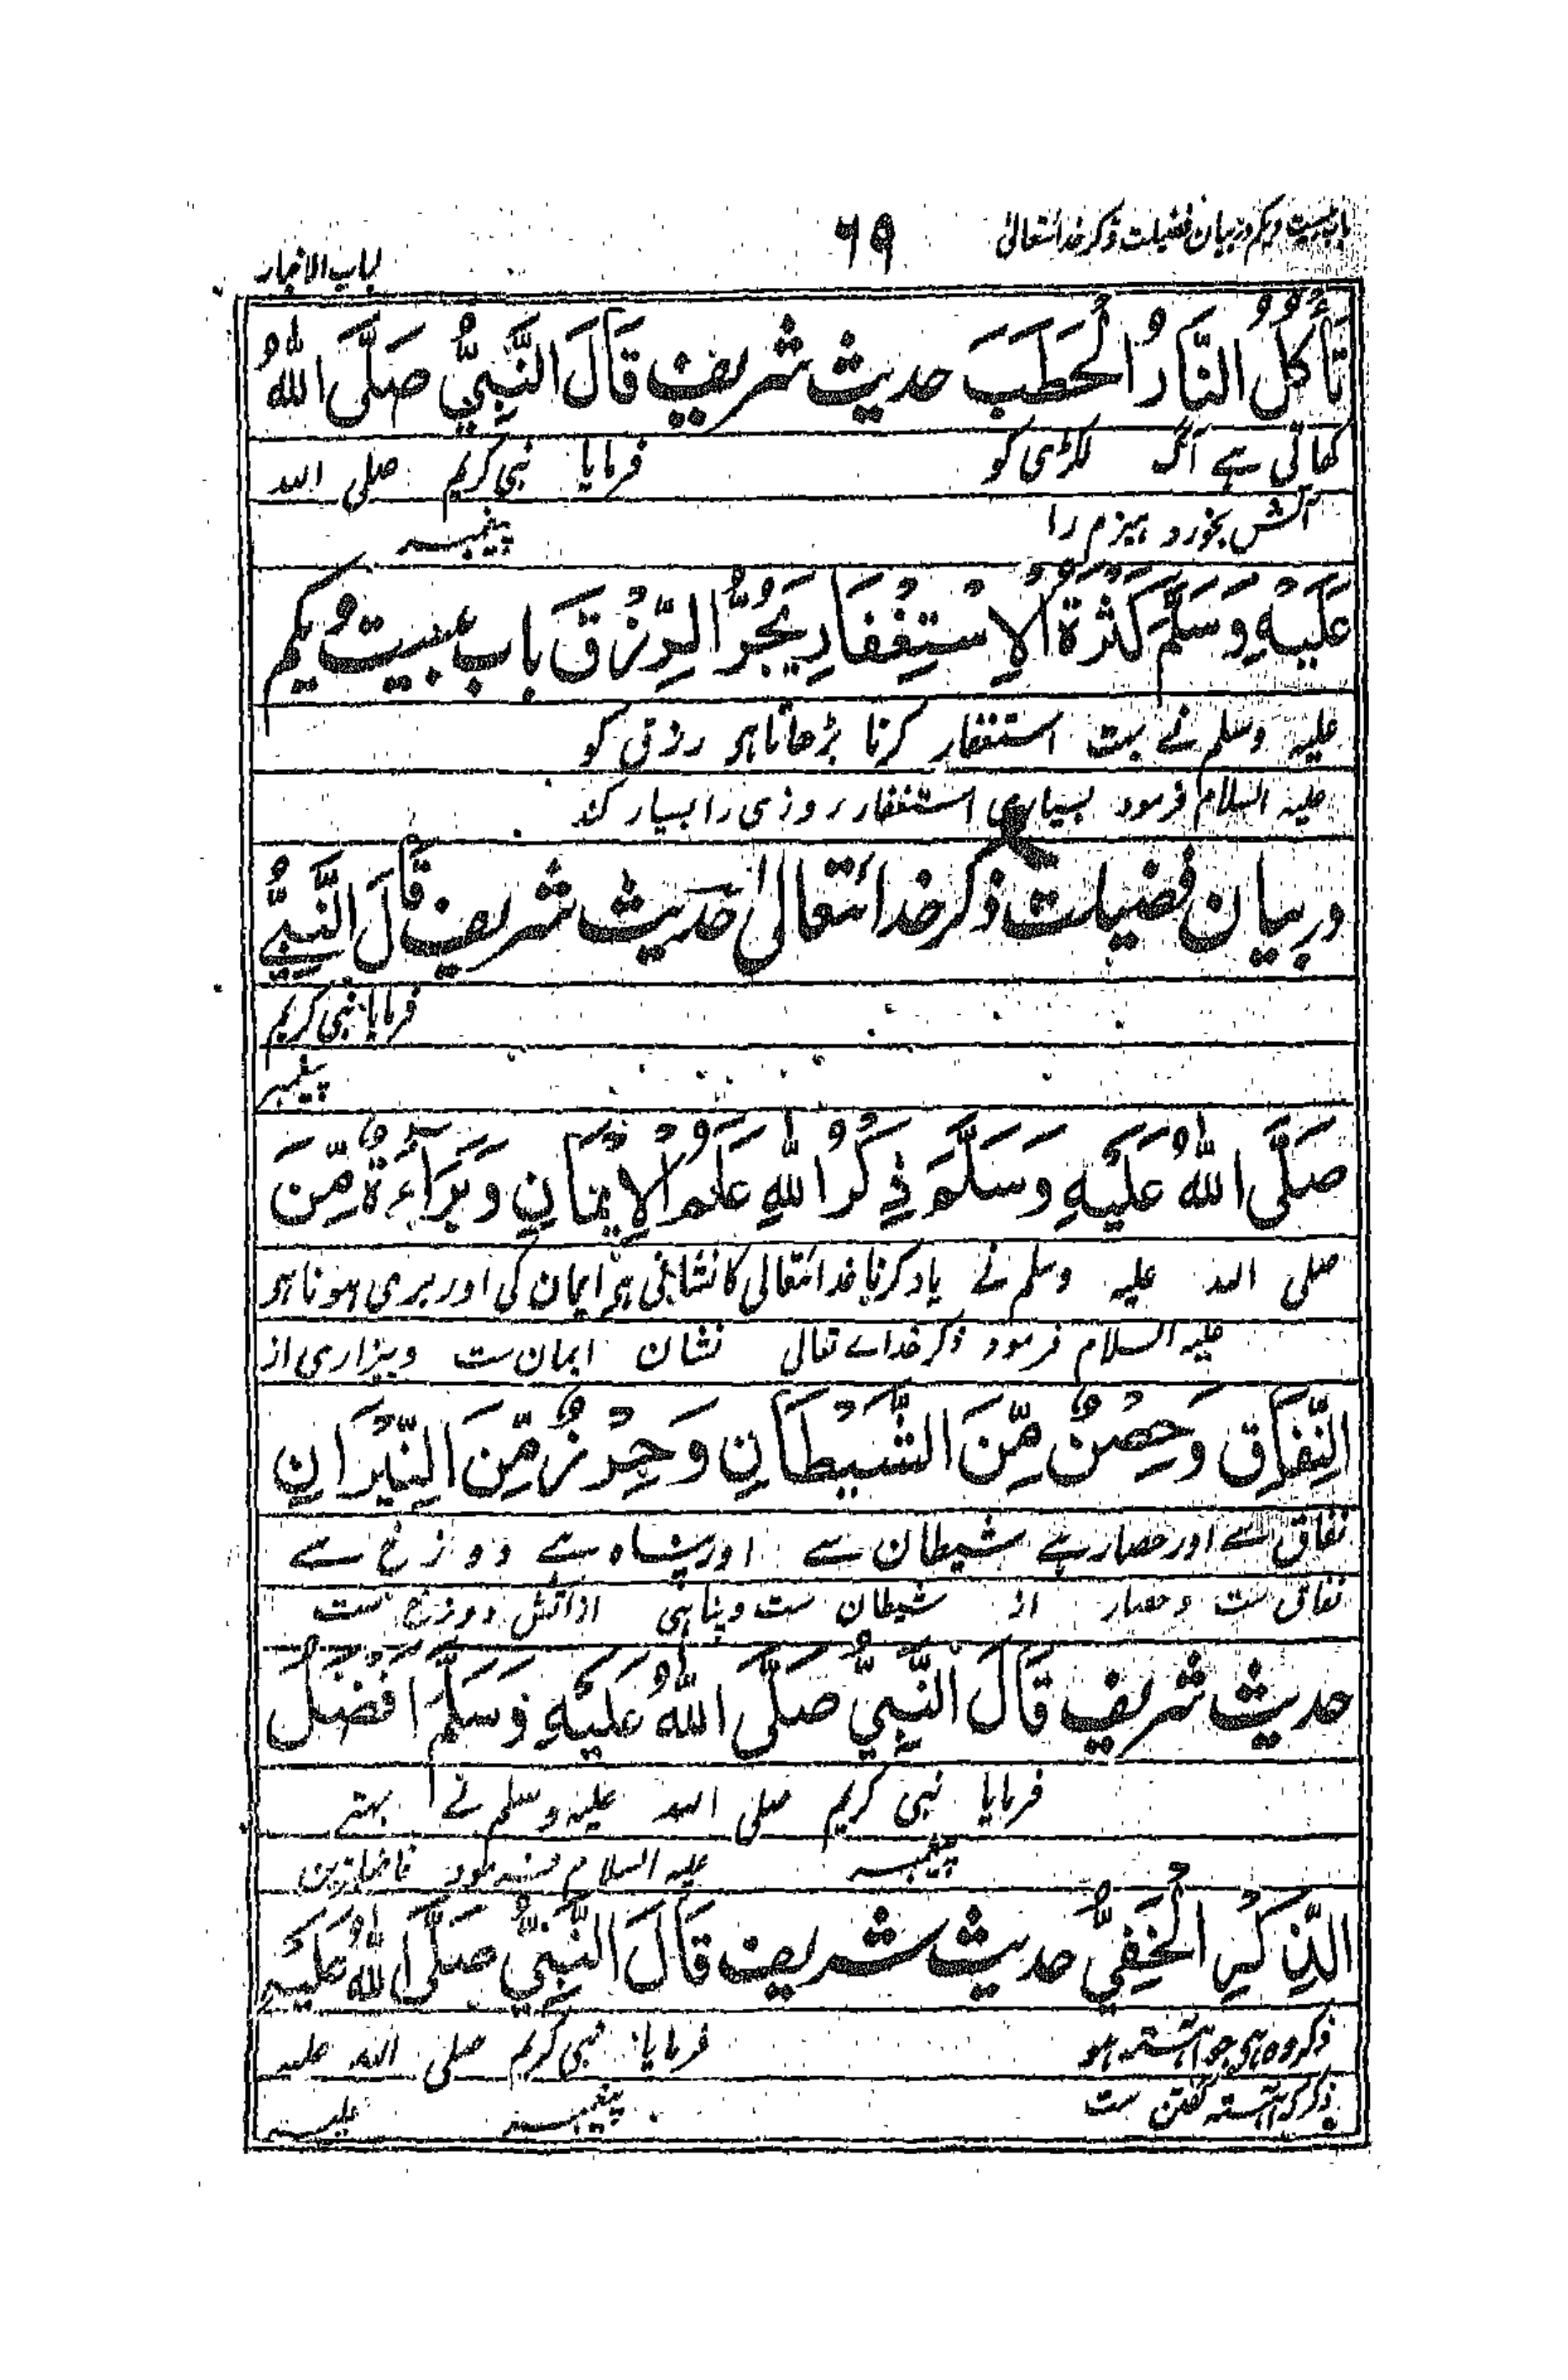 باب بیست و یکم در بیان فضیلت ذکر خدائتعالیٰ
۶۹
لباب الاخبار
تَأْكُلُ النَّارُ الْحَطَبَ حدیث شریف قَالَ النَّبِيُّ صَلَّى اللّٰهُ
کھاتی ہے آگ لکڑی کو فرمایا نبی کریم صلی اللہ
آتش بخورد ہیزم را پیغمبر
عَلَيْهِ وَسَلَّمَ كَثْرَةُ الْاِسْتِغْفَارِ يَجُرُّ الرِّزْقَ باب بیست و یکم
علیہ وسلم نے بہت استغفار کرنا بڑھاتا ہر رزق کو
علیہ السلام فرمود بسیاری استغفار روزی را بسیار کند
در بیان فضیلت ذکر خدائتعالیٰ حدیث شریف قَالَ النَّبِيُّ
فرمایا نبی کریم
پیغمبر
صَلَّى اللّٰهُ عَلَيْهِ وَسَلَّمَ ذِكْرُ اللّٰهِ عَلَمُ الْاِيْمَانِ وَبَرَآءَةٌ مِّنَ
صلی اللہ علیہ وسلم نے یاد کرنا خدائتعالی کا نشانی ہر ایمان کی اور بری ہونا ہر
علیہ السلام فرمود ذکر خداے تعالی نشان ایمان ست و بیزاری از
النِّفَاقِ وَحِصْنٌ مِّنَ الشَّيْطَانِ وَحِرْزٌ مِّنَ النِّيْرَانِ
نفاق سے اور حصار ہے شیطان سے اور پناہ ہے دوزخ سے
نفاق ست و حصار از شیطان ست و پناہی از آتش دوزخ ست
حدیث شریف قَالَ النَّبِيُّ صَلَّى اللّٰهُ عَلَيْهِ وَسَلَّمَ اَفْضَلُ
فرمایا نبی کریم صلی اللہ علیہ وسلم نے بہتر
پیغمبر علیہ السلام فرمود فاضلترین
الذِّكْرِ الْخَفِيُّ حدیث شریف قَالَ النَّبِيُّ صَلَّى اللّٰهُ عَلَيْهِ
ذکر وہ ہی جو آہستہ ہو فرمایا نبی کریم صلی اللہ علیہ
ذکر کہ آہستہ گفتن ست پیغمبر علیہ